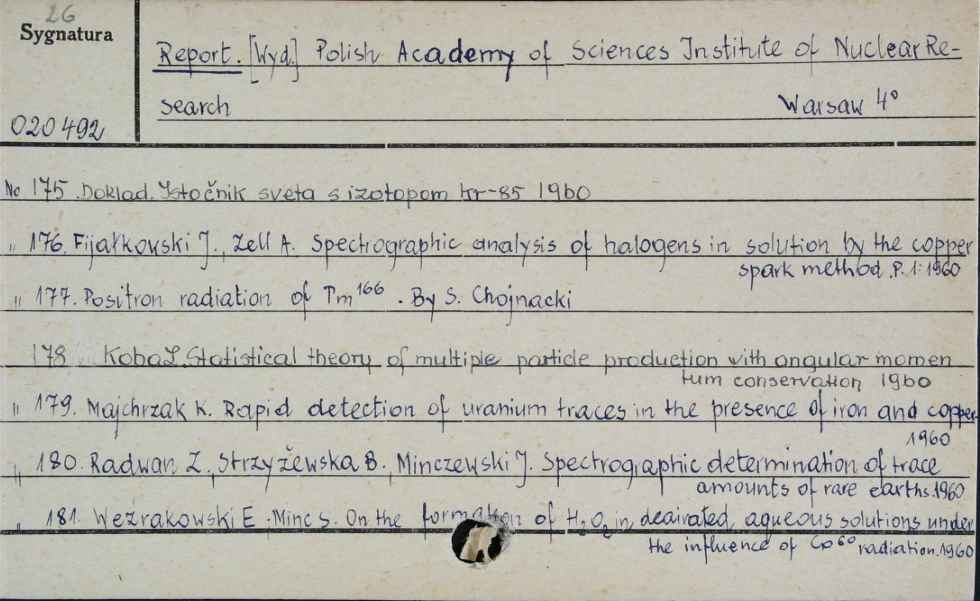 26
Sygnatura
020492
Report. [Wyd.] Polish Academy of Sciences Institute of Nuclear Re-
search Warsaw 4°
No 175. Doklad. Istočnik sveta s izotopom kr-85 1960
" 176. Fijałkowski J., Zell A. Spectrographic analysis of halogens in solution by the copper
spark method. P. 1: 1960
" 177. Positron radiation of Tm166. By S. Chojnacki
178 Koba Z. Statistical theory of multiple particle production with angular momen
tum conservation 1960
" 179. Majchrzak K. Rapid detection of uranium traces in the presence of iron and copper
1960
" 180. Radwan Z., Strzyżewska B., Minczewski J. Spectrographic determination of trace
amounts of rare earths. 1960
" 181. Wezrakowski E. Minc S. On the formation of H2O2 in deairated aqueous solutions under
the influence of Co60 radiation. 1960